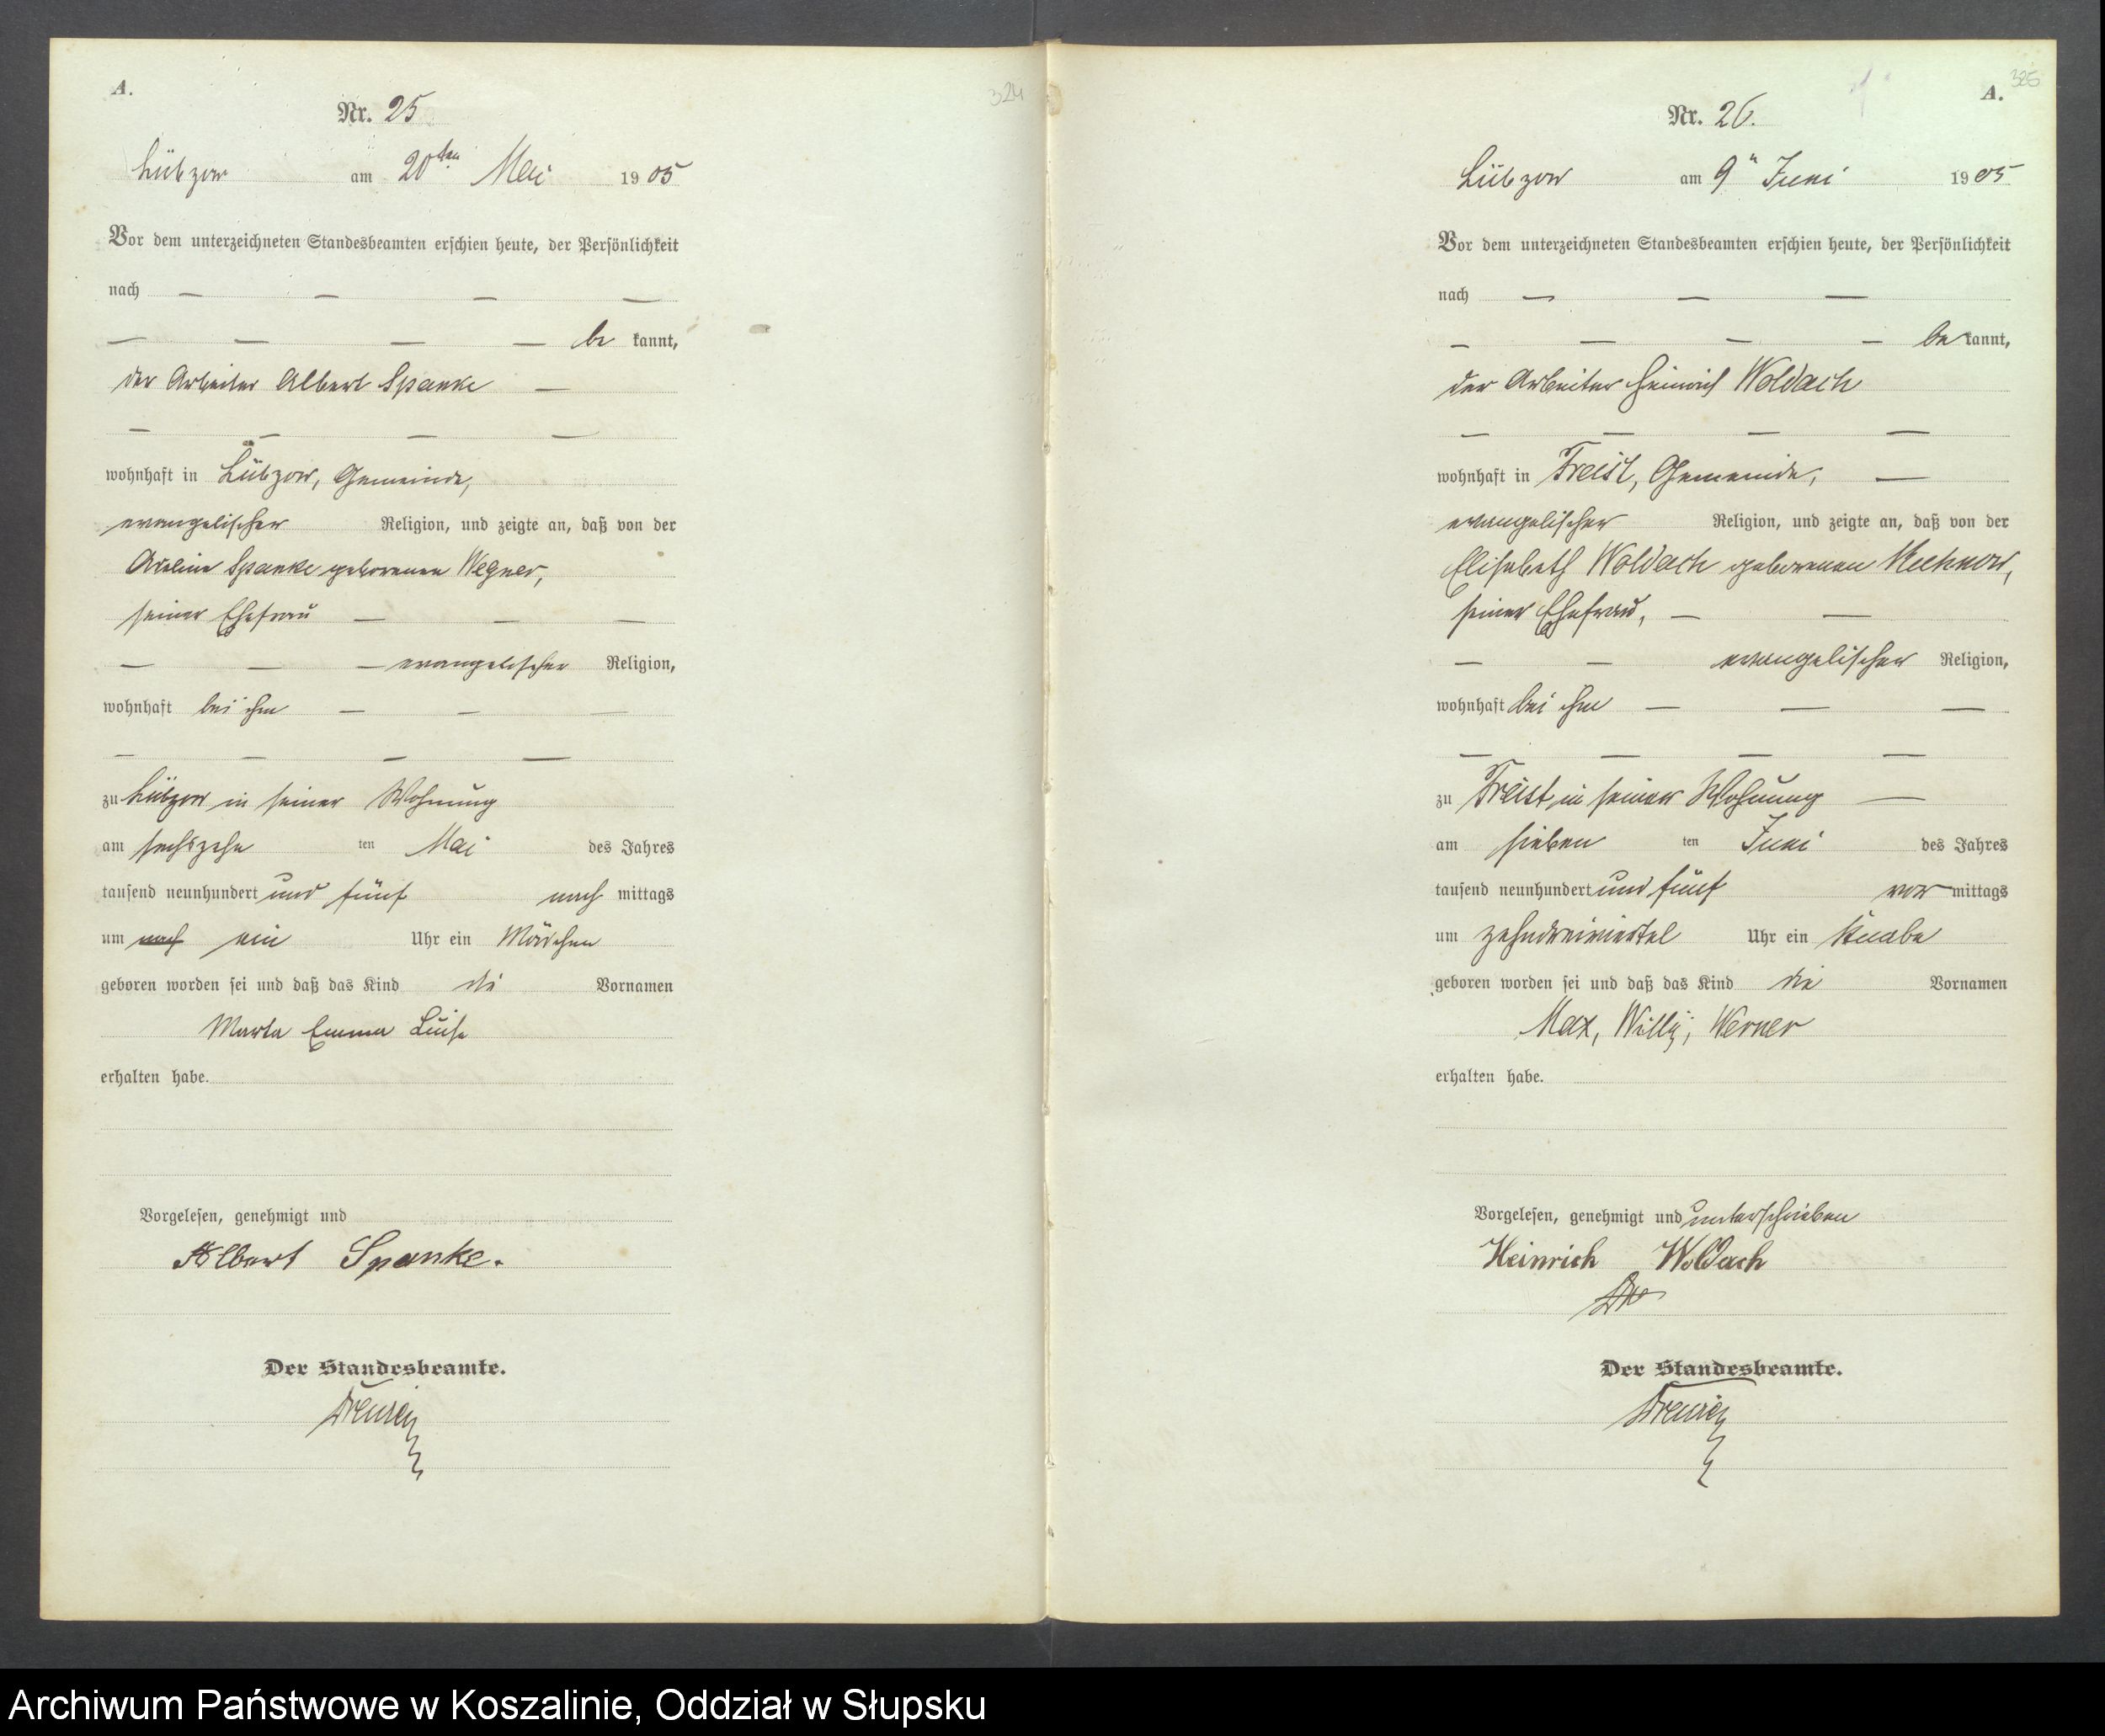 A.
324
Nr. 25
Lübzow am 20ten Mai 1905
Vor dem unterzeichneten Standesbeamten erschien heute, der Persönlichkeit
nach — — — —
— — — — be kannt,
der Arbeiter Albert Spanke —
— — — —
wohnhaft in Lübzow, Gemeinde,
evangelischer Religion, und zeigte an, daß von der
Adeline Spanke geborenen Wegner,
seiner Ehefrau — — —
— — — evangelischer Religion,
wohnhaft bei ihm — — —
— — — —
zu Lübzow in seiner Wohnung
am sechszehn ten Mai des Jahres
tausend neunhundert und fünf nach mittags
um nach ein Uhr ein Mädchen
geboren worden sei und daß das Kind die Vornamen
Marta Emma Luise
erhalten habe.
Vorgelesen, genehmigt und
Albert Spanke.
Der Standesbeamte.
325
A.
Nr. 26.
Lübzow am 9" Juni 1905
Vor dem unterzeichneten Standesbeamten erschien heute, der Persönlichkeit
nach — — —
— — — — be kannt,
der Arbeiter Heinrich Woldach
— — — —
wohnhaft in Freist, Gemeinde, —
evangelischer Religion, und zeigte an, daß von der
Elisabeth Woldach geborenen
seiner Ehefrau, — —
— — evangelischer Religion,
wohnhaft bei ihm — — —
— — — —
zu Freist, in seiner Wohnung —
am sieben ten Juni des Jahres
tausend neunhundert und fünf vor mittags
um zehndreiviertel Uhr ein Knabe
geboren worden sei und daß das Kind die Vornamen
Max, Willy, Werner
erhalten habe.
Vorgelesen, genehmigt und unterschrieben
Heinrich Woldach
Der Standesbeamte.
Archiwum Państwowe w Koszalinie, Oddział w Słupsku